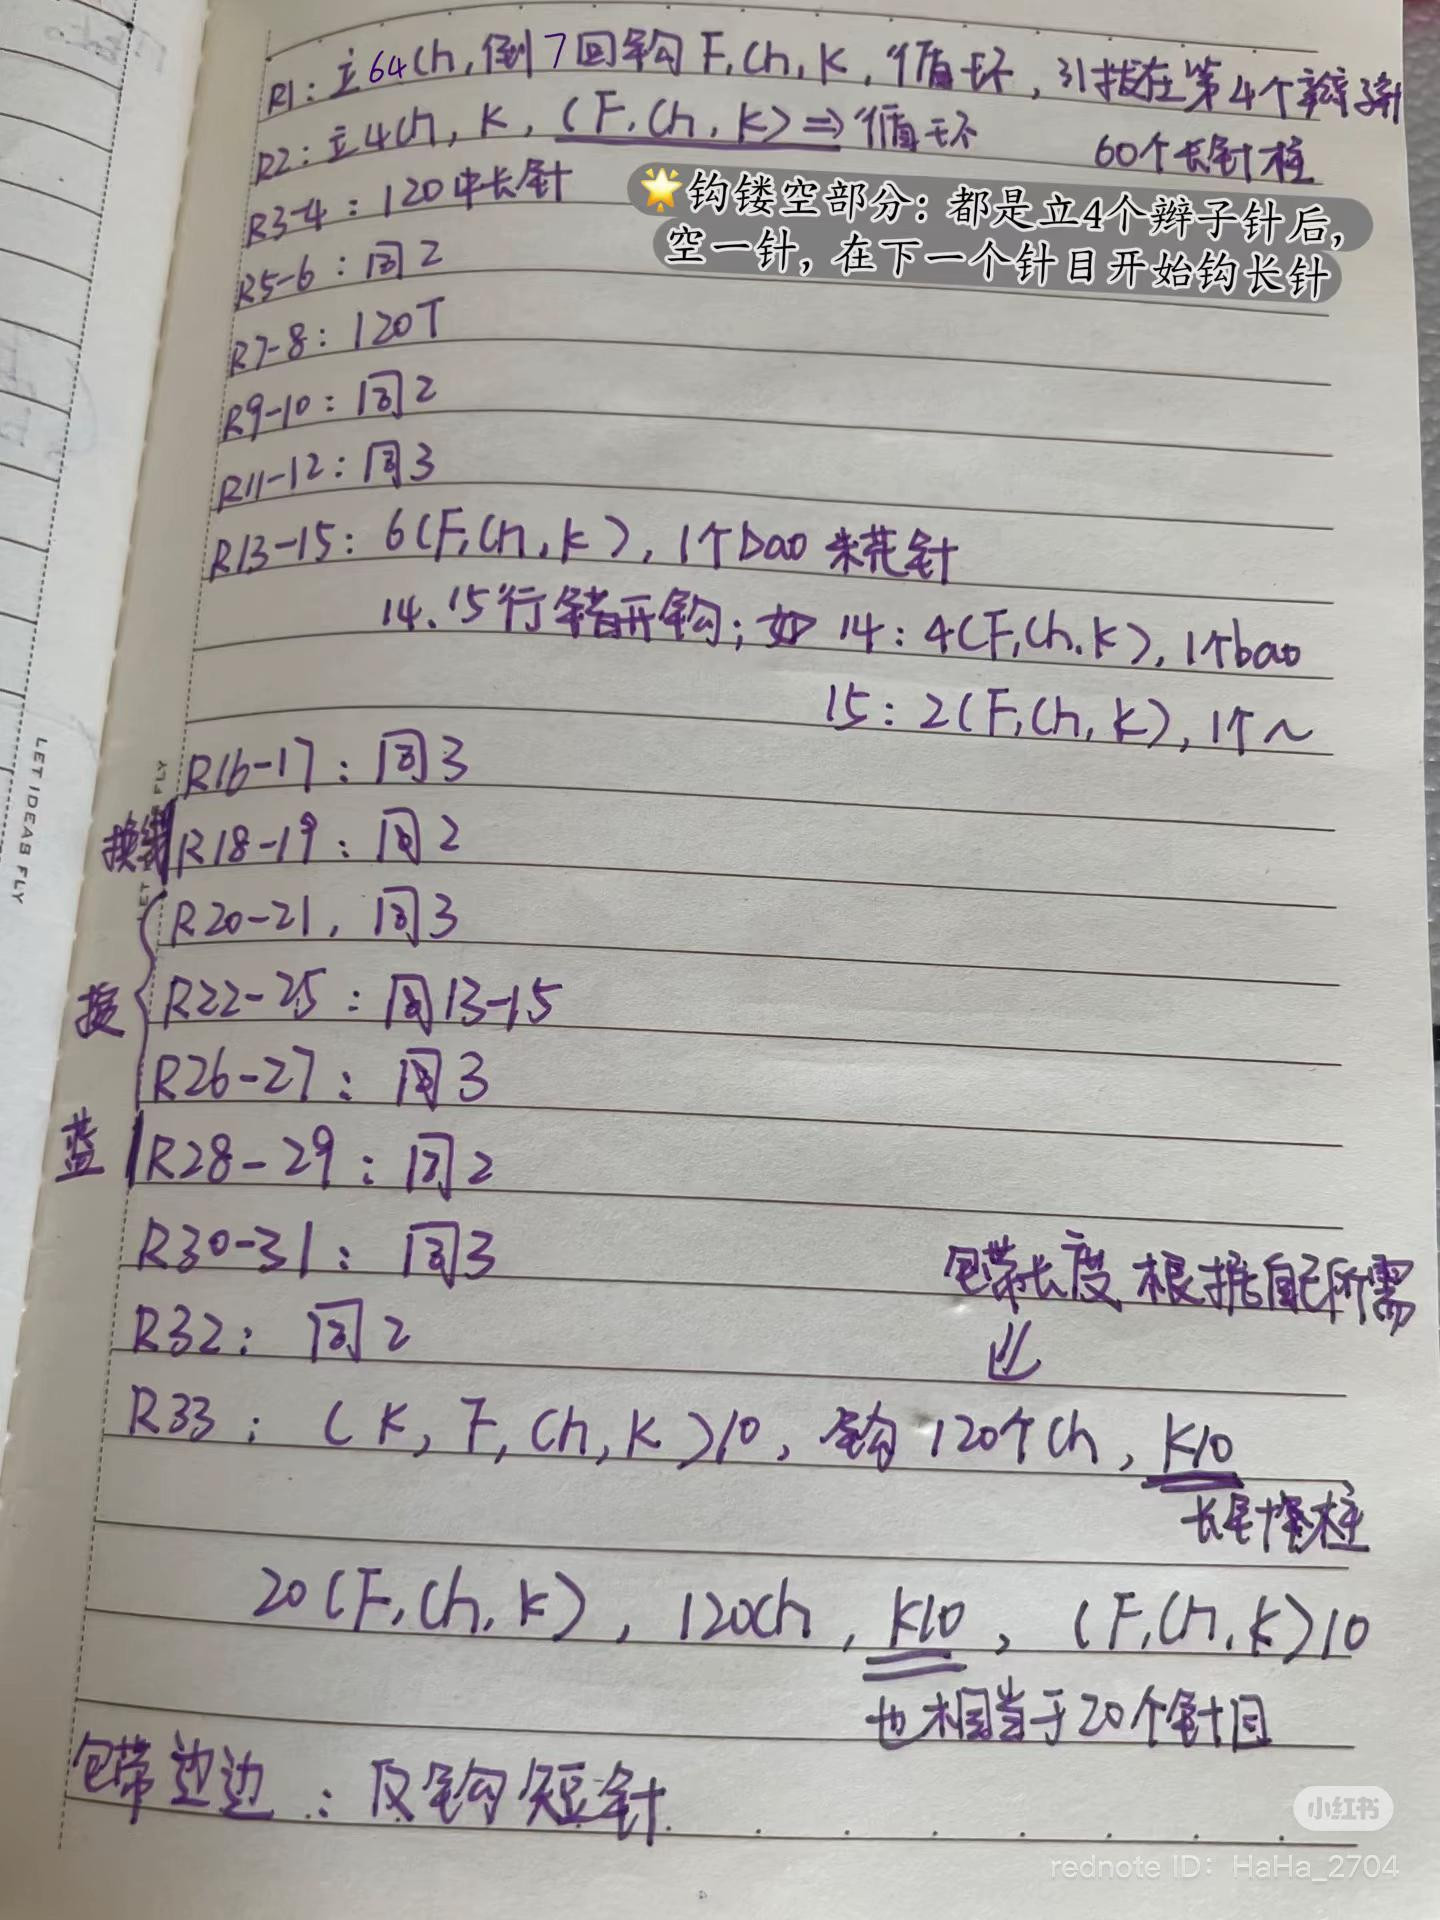 R1：立64ch，倒7回钩F,ch,K，循环，引拔在第4个辫子针
R2：立4ch，K，(F,ch,K)⇒循环 60个长针柱
R3-4：120中长针
🌟钩镂空部分：都是立4个辫子针后，
空一针，在下一个针目开始钩长针
R5-6：同2
R7-8：120T
R9-10：同2
R11-12：同3
R13-15：6(F,ch,K)，1个bao米花针
14、15行错开钩；如 14：4(F,ch.K)，1个bao
15：2(F,ch,K)，1个～
R16-17：同3
换线 R18-19：同2
R20-21，同3
R22-25：同13-15
R26-27：同3
蓝 R28-29：同2
R30-31：同3
包带长度根据自己所需
R32：同2
R33：(K,F,ch,K)10，钩120个ch，K10
长针柱
20(F,ch,K)，120ch，K10，(F,ch,K)10
也相当于20个针目
包带边边：反钩短针
LET IDEAS FLY
小红书
rednote ID：HaHa_2704